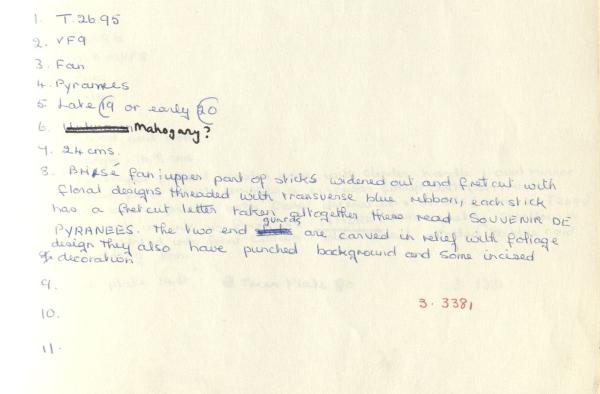 1. T.2695
2. VF9
3. Fan
4. Pyranees
5. Late C19 or early C20
6. Mahogany?
7. 24 cms.
8. BRISÉ fan: upper part of sticks widened out and fretcut with
floral designs threaded with transverse blue ribbon, each stick
has a fretcut letter taken alltogether these read SOUVENIR DE
PYRANEES. The two end guards are carved in relief with foliage
design They also have punched background and some incised
decoration
9.
10.
3.3381
11.